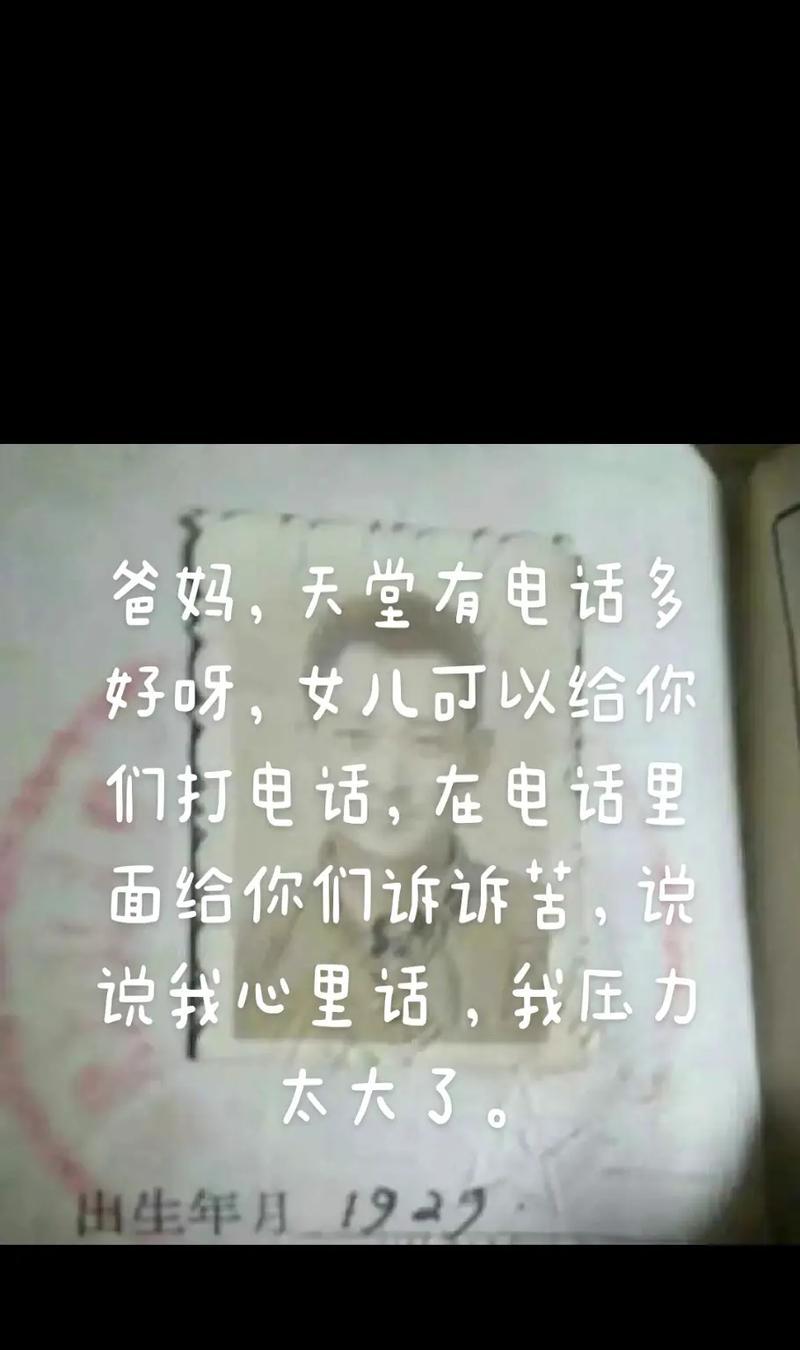 爸妈，天堂有电话多
好呀，女儿可以给你
们打电话，在电话里
面给你们诉诉苦，说
说我心里话，我压力
太大了。
出生年月 1929.